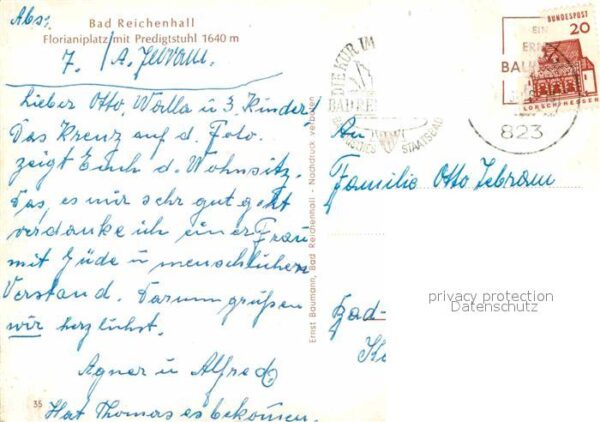 Abs:
Bad Reichenhall
Florianiplatz mit Predigtstuhl 1640 m
7. / A. Jebram.
Lieber Otto, Walla u 3 Kinder!
Das Kreuz auf d. Foto.
zeigt Euch d. Wohnsitz.
Das, es mir sehr gut geht
verdanke ich einer Frau
mit Güde u menschlichen
Verstand. Darum grüßen
wir herzlichst.
Agnes u Alfred
Hat Thomas es bekommen.
35
Ernst Baumann, Bad Reichenhall - Nachdruck verboten
DIE KUR IM
BAD REI
STAATSBAD
EIN
BAU
BUNDESPOST
20
LORSCH/HESSEN
823
An
Familie Otto Jebram
Bad-
privacy protection
Datenschutz